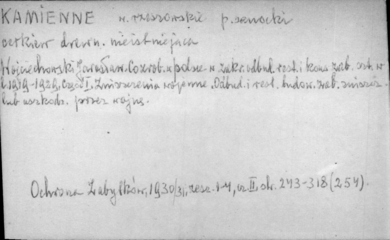 KAMIENNE w. rzeszowskie p. sanocki
cerkiew drewn. nieistniejąca
Wojciechowski Jarosław. Co zrob. w Polsce w zakr. odbud. rest. i kons. zab. szt. w
l. 1919-1929. Część I. Zniszczenia wojenne. Odbud. i rest. budow. zab. zniszcz.
lub uszkodz. przez wojnę.
Ochrona Zabytków, 1930/31, zesz. 1-4, cz. II, str. 243-318 (254).